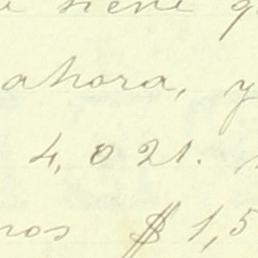 e tiene q
ahora, y
4,021.
ros $ 1,5